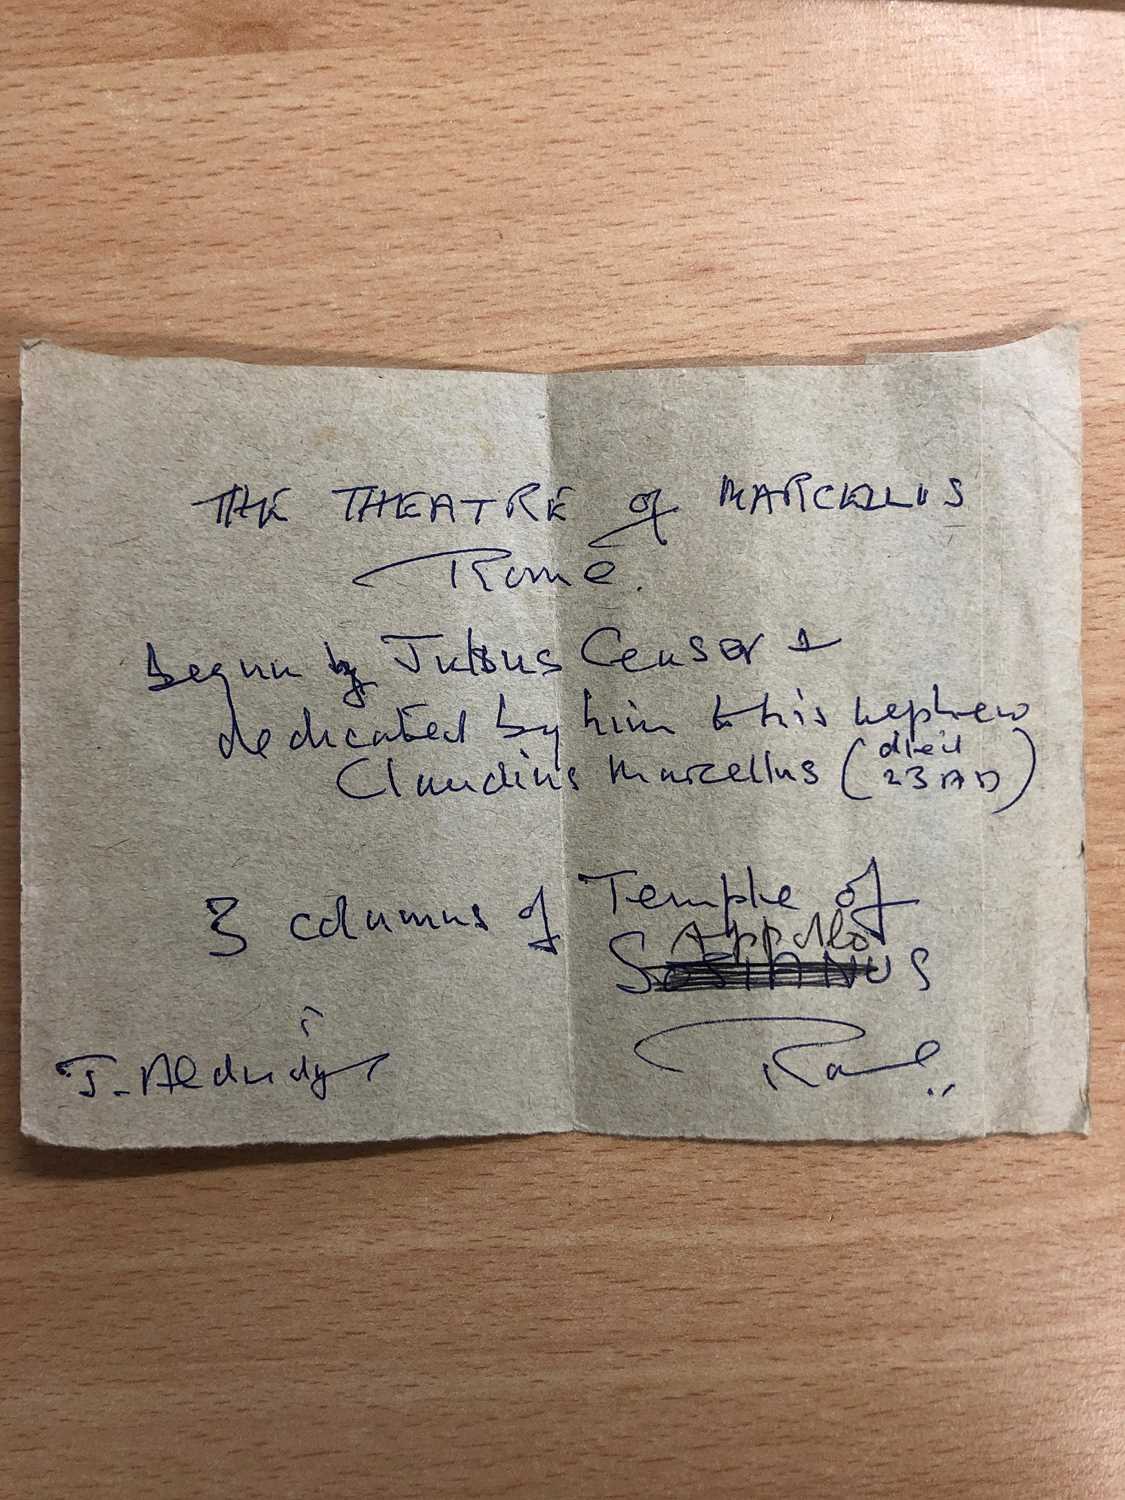 THE THEATRE of MARCELLUS
Rome.
begun by Julius Ceasar &
dedicated by him to his nephew
Claudius Marcellus (died
23 AD)
3 columns of Temple of
Appollo
SOSIANUS
J. Aldridge
Rome